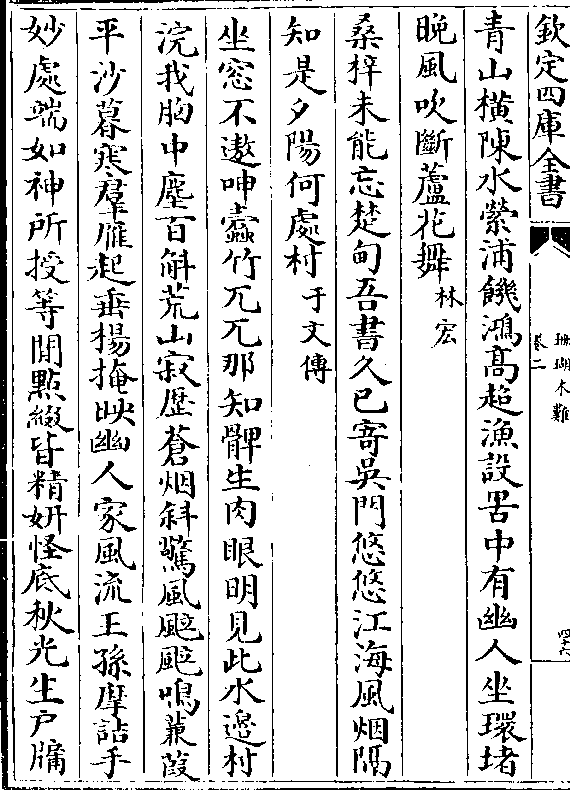 欽定四庫全書
珊瑚木難
卷二
四十六
青山横陳水縈浦饑鴻髙超漁設罟中有幽人坐環堵
晩風吹斷蘆花舞林宏
桑梓未能忘楚甸吾書久已寄吳門悠悠江海風烟隔
知是夕陽何處村于文傳
坐窓不遨呻蠧竹兀兀那知髀生肉眼明見此水邉村
浣我胸中塵百斛荒山寂歴蒼烟斜驚風颭颭鳴蒹葭
平沙暮寒羣雁起垂楊掩映幽人家風流王孫摩詰手
妙處端如神所授等閒點綴皆精妍怪底秋光生戸牖